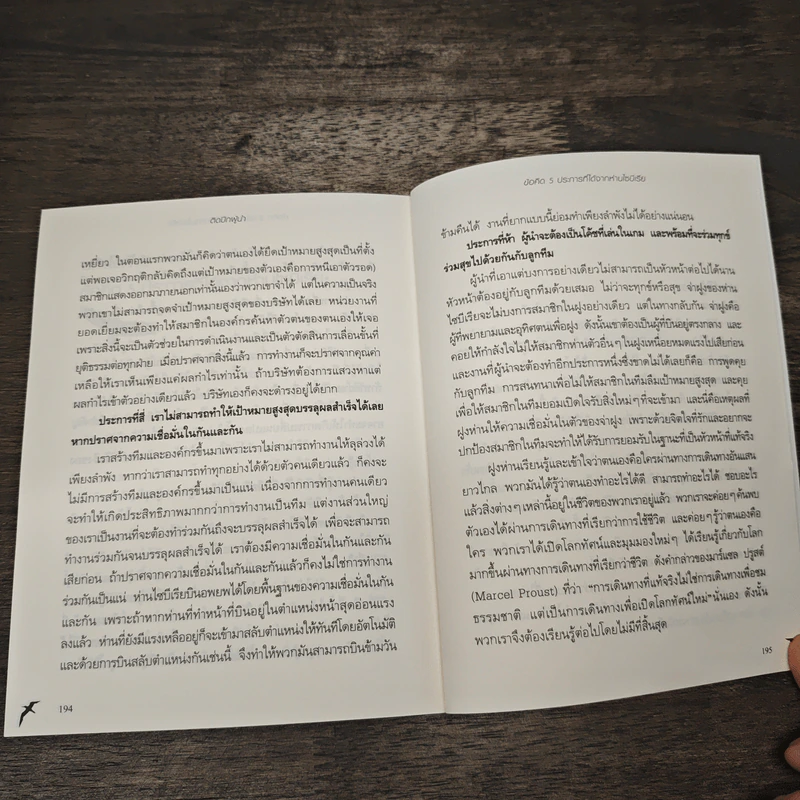 ติดปีกฟุ่บ่า
เหยี่ยว ในตอนแรกพวกมันก็คิดว่าตนเองได้ยึดเป้าหมายสูงสุดเป็นที่ตั้ง
แต่พอเจอวิกฤติกลับคิดถึงแต่เป้าหมายของตัวเองคือการหนีเอาตัวรอด)
สมาชิกแสดงออกมาภายนอกเท่านั้นเองว่าพวกเขาจำได้ แต่ในความเป็นจริง
พวกเขาไม่สามารถจดจำเป้าหมายสูงสุดของบริษัทได้เลย หน่วยงานที่
ยอดเยี่ยมจะต้องทำให้สมาชิกในองค์กรค้นหาตัวตนของตนเองให้เจอ
เพราะสิ่งนี้จะเป็นตัวช่วยในการดำเนินงานและเป็นตัวตัดสินการเลื่อนขั้นที่
ยุติธรรมต่อทุกฝ่าย เมื่อปราศจากสิ่งนี้แล้ว การทำงานก็จะปราศจากคุณค่า
เหลือให้เราเห็นเพียงแค่ผลกำไรเท่านั้น ถ้าบริษัทต้องการแสวงหาแต่
ผลกำไรเข้าตัวอย่างเดียวแล้ว บริษัทเองก็คงจะดำรงอยู่ได้ยาก
ประการที่สี่ เราไม่สามารถทำให้เป้าหมายสูงสุดบรรลุผลสำเร็จได้เลย
หากปราศจากความเชื่อมั่นในกันและกัน
เราสร้างทีมและองค์กรขึ้นมาเพราะเราไม่สามารถทำงานให้ลุล่วงได้
เพียงลำพัง หากว่าเราสามารถทำทุกอย่างได้ด้วยตัวคนเดียวแล้ว ก็คงจะ
ไม่มีการสร้างทีมและองค์กรขึ้นมาเป็นแน่ เนื่องจากการทำงานคนเดียว
จะทำให้เกิดประสิทธิภาพมากกว่าการทำงานเป็นทีม แต่งานส่วนใหญ่
ของเราเป็นงานที่จะต้องทำร่วมกันถึงจะบรรลุผลสำเร็จได้ เพื่อจะสามารถ
ทำงานร่วมกันจนบรรลุผลสำเร็จได้ เราต้องมีความเชื่อมั่นในกันและกัน
เสียก่อน ถ้าปราศจากความเชื่อมั่นในกันและกันแล้วก็คงไม่ใช่การทำงาน
ร่วมกันเป็นแน่ ห่านไซบีเรียบินอพยพได้โดยพื้นฐานของความเชื่อมั่นในกัน
และกัน เพราะถ้าหากห่านที่ทำหน้าที่บินอยู่ในตำแหน่งหน้าสุดอ่อนแรง
ลงแล้ว ห่านที่ยังมีแรงเหลืออยู่ก็จะเข้ามาสลับตำแหน่งให้ทันทีโดยอัตโนมัติ
และด้วยการบินสลับตำแหน่งกันเช่นนี้ จึงทำให้พวกมันสามารถบินข้ามวัน
194
ข้อคิด 5 ประการที่ได้จากห่านไซบีเรีย
ข้ามคืนได้ งานที่ยากแบบนี้ย่อมทำเพียงลำพังไม่ได้อย่างแน่นอน
ประการที่ห้า ผู้นำจะต้องเป็นโค้ชที่เล่นในเกม และพร้อมที่จะร่วมทุกข์
ร่วมสุขไปด้วยกันกับลูกทีม
ผู้นำที่เอาแต่บงการอย่างเดียวไม่สามารถเป็นหัวหน้าต่อไปได้นาน
หัวหน้าต้องอยู่กับลูกทีมด้วยเสมอ ไม่ว่าจะทุกข์หรือสุข จ่าฝูงของห่าน
ไซบีเรียจะไม่บงการสมาชิกในฝูงอย่างเดียว แต่ในทางกลับกัน จ่าฝูงคือ
ผู้ที่พยายามและอุทิศตนเพื่อฝูง ดังนั้นเขาต้องเป็นผู้ที่บินอยู่ตรงกลาง และ
คอยให้กำลังใจไม่ให้สมาชิกห่านตัวอื่นๆ ในฝูงเหนื่อยหมดแรงไปเสียก่อน
และงานที่ผู้นำจะต้องทำอีกประการหนึ่งซึ่งขาดไม่ได้เลยก็คือ การพูดคุย
กับลูกทีม การสนทนาเพื่อไม่ให้สมาชิกในทีมลืมเป้าหมายสูงสุด และคุย
เพื่อให้สมาชิกในทีมยอมเปิดใจรับสิ่งใหม่ๆ ที่จะเข้ามา และนี่คือเหตุผลที่
ฝูงห่านให้ความเชื่อมั่นในตัวของจ่าฝูง เพราะด้วยจิตใจที่รักและอยากจะ
ปกป้องสมาชิกในทีมจะทำให้ได้รับการยอมรับในฐานะที่เป็นหัวหน้าที่แท้จริง
ฝูงห่านเรียนรู้และเข้าใจว่าตนเองคือใครผ่านการเดินทางอันแสน
ยาวไกล พวกมันได้รู้ว่าตนเองทำอะไรได้ดี สามารถทำอะไรได้ ชอบอะไร
แล้วสิ่งต่างๆ เหล่านี้อยู่ในชีวิตของพวกเราอยู่แล้ว พวกเราจะค่อยๆ ค้นพบ
ตัวเองได้ผ่านการเดินทางที่เรียกว่าการใช้ชีวิต และค่อยๆ รู้ว่าตนเองคือ
ใคร พวกเราได้เปิดโลกทัศน์และมุมมองใหม่ๆ ได้เรียนรู้เกี่ยวกับโลก
มากขึ้นผ่านทางการเดินทางที่เรียกว่าชีวิต ดังคำกล่าวของมาร์แซล ปรูสต์
(Marcel Proust) ที่ว่า “การเดินทางที่แท้จริงไม่ใช่การเดินทางเพื่อชม
ธรรมชาติ แต่เป็นการเดินทางเพื่อเปิดโลกทัศน์ใหม่” นั่นเอง ดังนั้น
พวกเราจึงต้องเรียนรู้ต่อไปโดยไม่มีที่สิ้นสุด
195